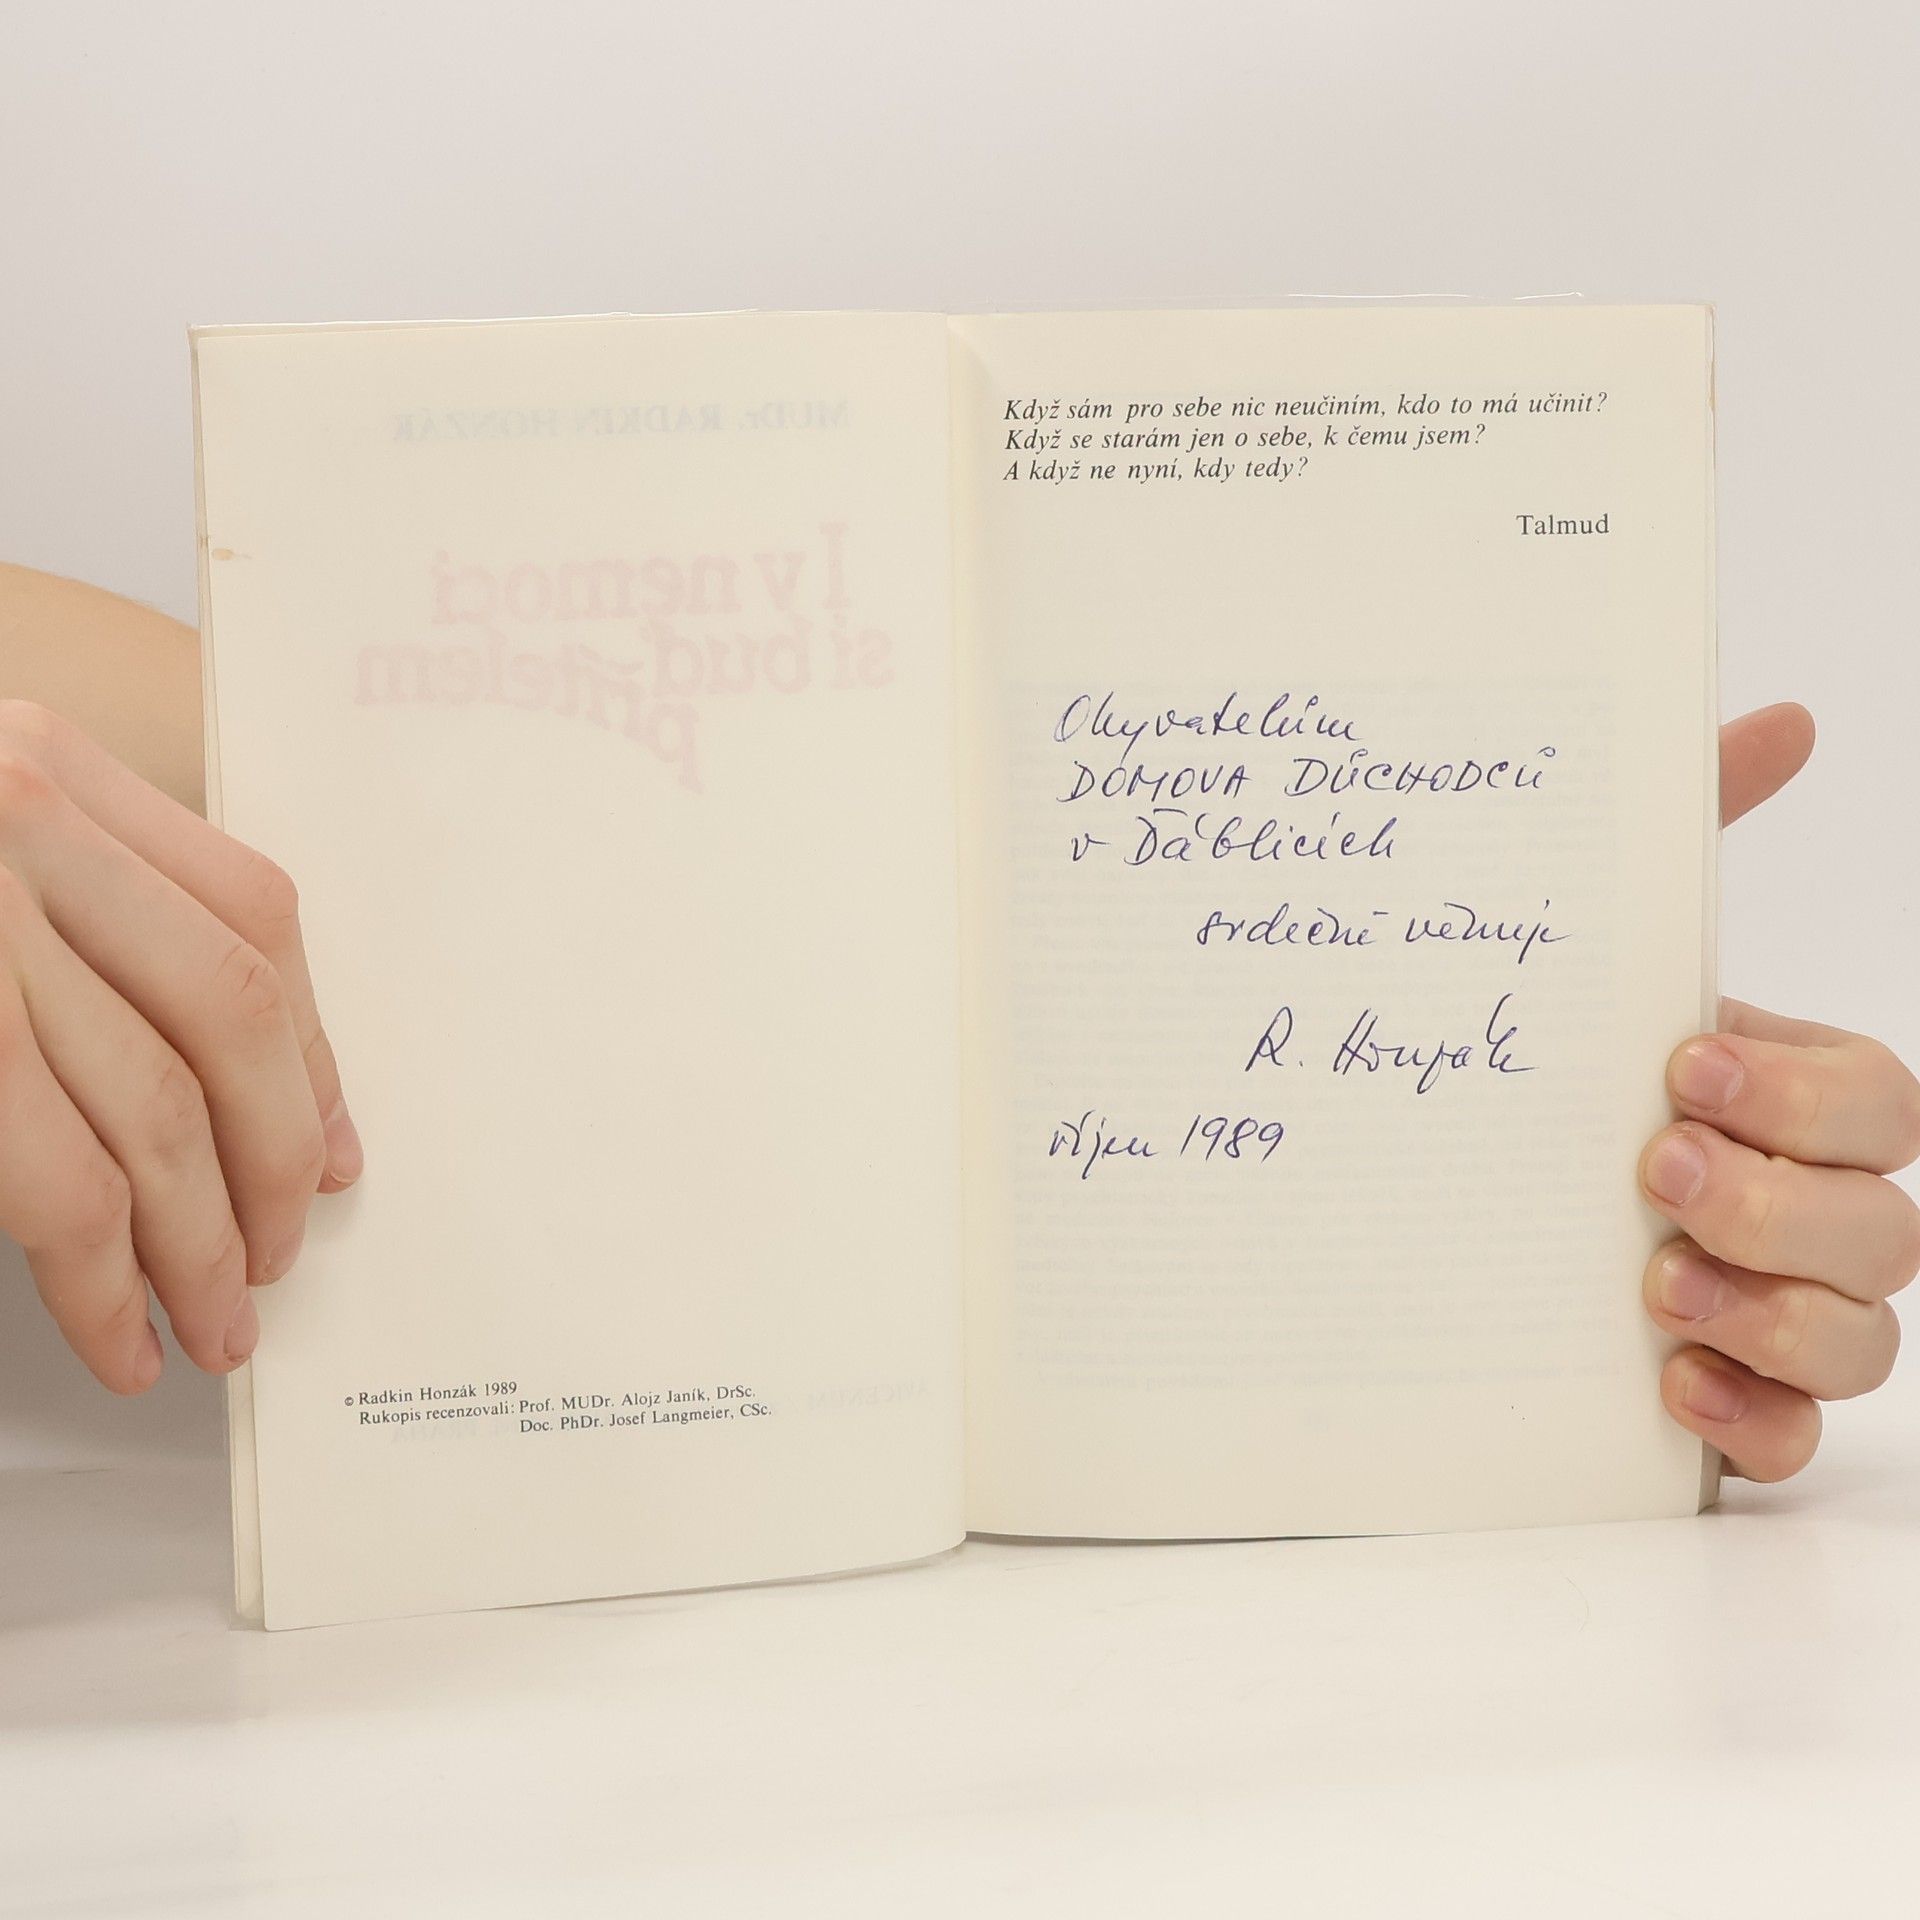 MUDr. RADKIN HONZÁK
I v nemoci
si buď
přítelem
© Radkin Honzák 1989
Rukopis recenzovali: Prof. MUDr. Alojz Janík, DrSc.
Doc. PhDr. Josef Langmeier, CSc.
Když sám pro sebe nic neučiním, kdo to má učinit?
Když se starám jen o sebe, k čemu jsem?
A když ne nyní, kdy tedy?
Talmud
Obyvatelům
DOMOVA DŮCHODCŮ
v Ďáblicích
srdečně věnuje
R. Honzák
říjen 1989